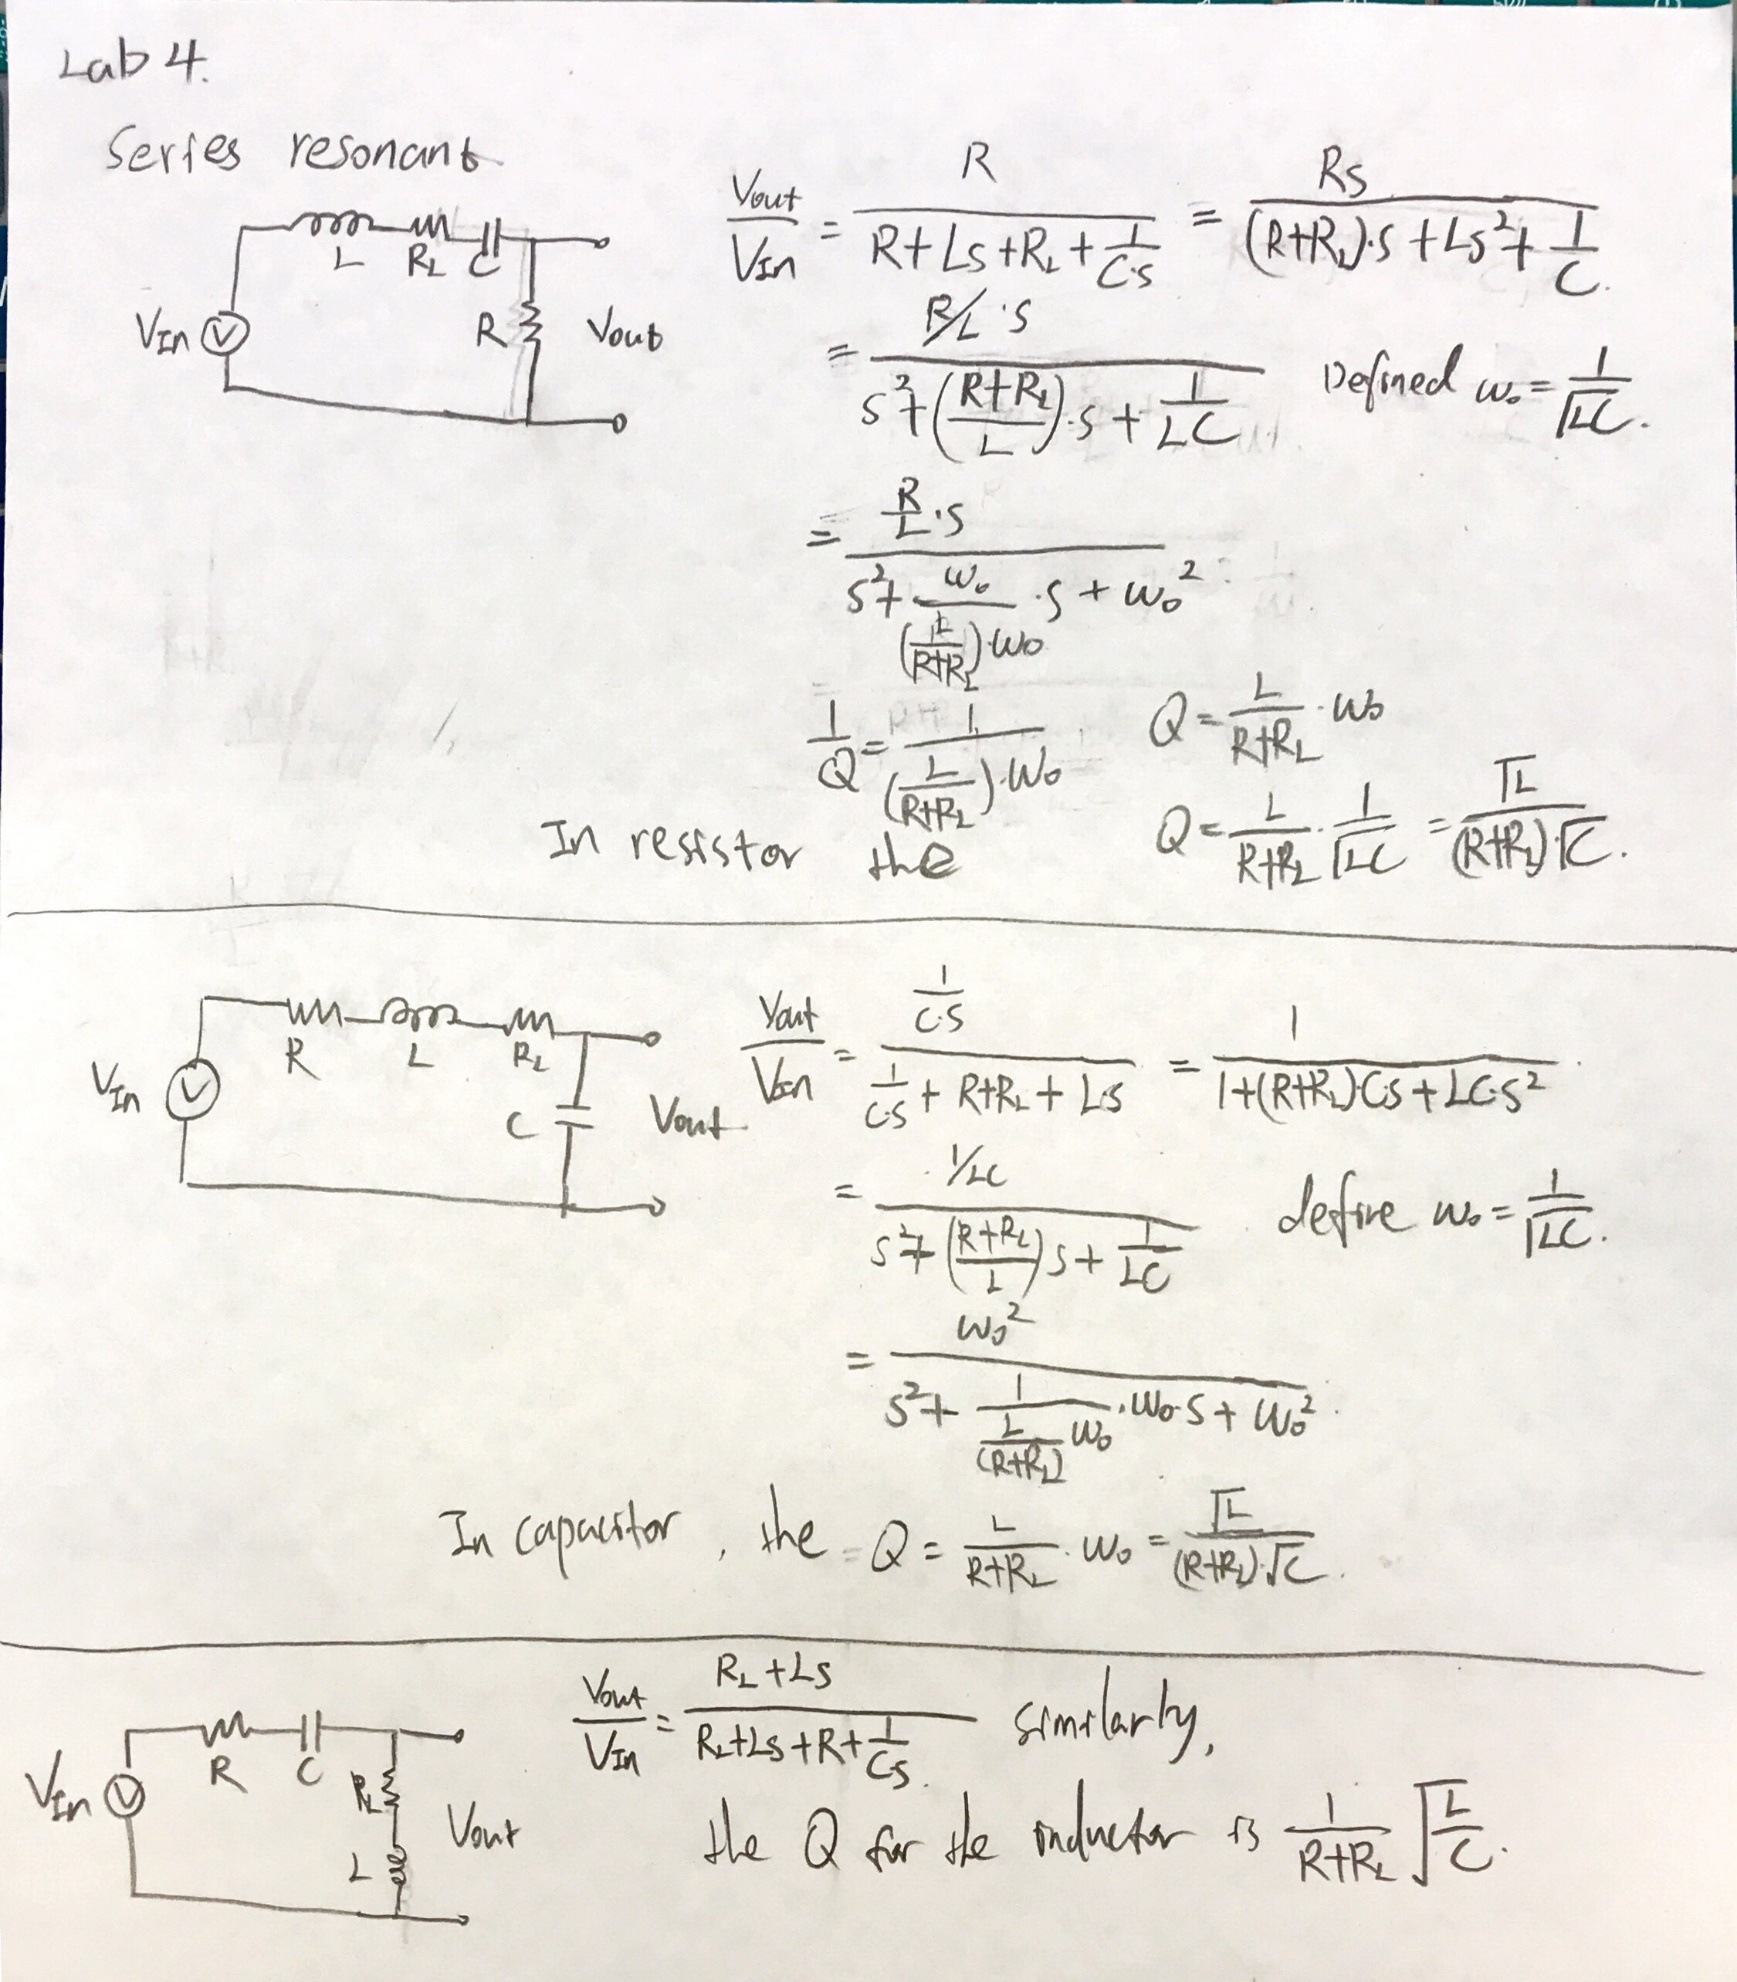 Lab 4.
Series resonant
L R_L C
V_In V R Vout
Vout/V_In = R/(R+Ls+R_L+1/(C·s)) = Rs/((R+R_L)·s+Ls²+1/C).
= (R/L·s)/(s²+((R+R_L)/L)·s+1/(LC)) Defined ω₀=1/√LC.
= (R/L·s)/(s²+ω₀/((L/(R+R_L))·ω₀)·s+ω₀²)
1/Q = 1/((L/(R+R_L))·ω₀) Q=L/(R+R_L)·ω₀
In resistor the Q=L/(R+R_L)·1/√LC=√L/((R+R_L)√C).
R L R_L
V_In V C Vout
Vout/V_In = (1/(C·s))/(1/(C·s)+R+R_L+Ls) = 1/(1+(R+R_L)Cs+LC·s²)
= (1/LC)/(s²+((R+R_L)/L)s+1/(LC)) define ω₀=1/√LC.
= ω₀²/(s²+1/((L/(R+R_L))ω₀)·ω₀·s+ω₀²)
In capacitor, the Q = L/(R+R_L)·ω₀ = √L/((R+R_L)·√C).
R C
V_In V R_L L Vout
Vout/V_In = (R_L+Ls)/(R_L+Ls+R+1/(Cs)) similarly,
the Q for the inductor is 1/(R+R_L) √(L/C).